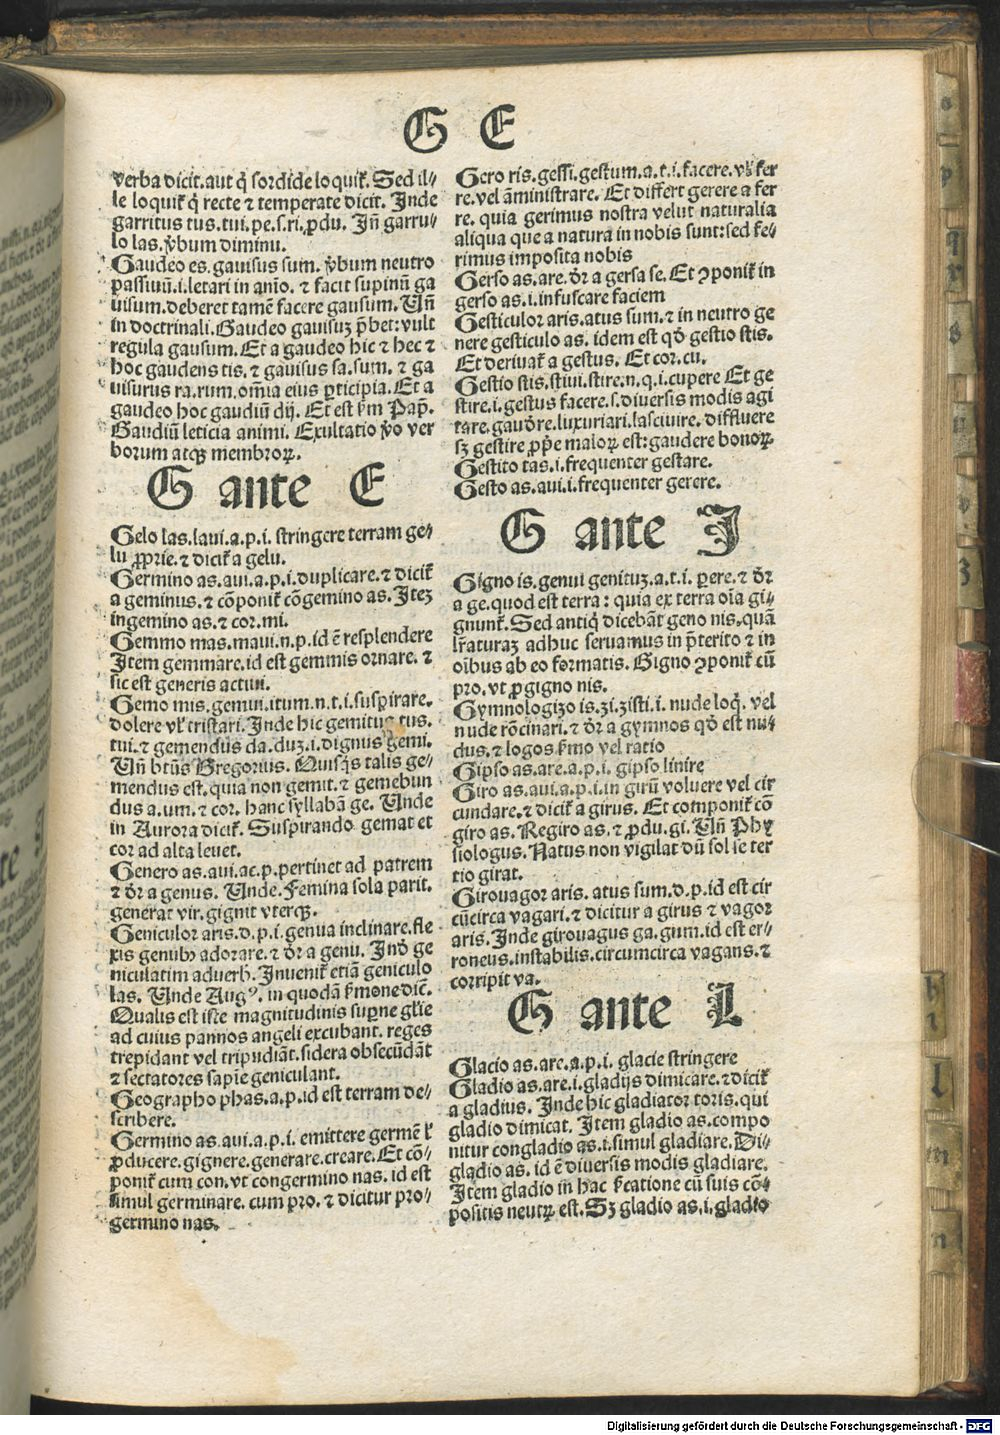 G E
verba dicit. aut q̇ sordide loquiť. Sed il⸗
le loquiť q̇ recte ⁊ temperate dicit. Inde
garritus tus. tui. pe. s. ri. ꝓdu. Iñ garru⸗
lo las. v̇bum diminu.
Gaudeo es. gauisus sum. v̇bum neutro
passiuū. i. letari in aīo. ⁊ facit supinū ga
uisum. deberet tamē facere gausum. Uñ
in doctrinali. Gaudeo gauisuꝫ p̄bet: vult
regula gausum. Et a gaudeo hic ⁊ hec ⁊
hoc gaudens tis. ⁊ gauisus sa. sum. ⁊ ga
uisurus ra. rum. oīa eius ꝑticipia. Et a
gaudeo hoc gaudiū dij. Et est ẜm Pap̄.
Gaudiū leticia animi. Exultatio v̊o ver
borum atqꝫ membroꝝ.
G ante E
Gelo las. laui. a. p. i. stringere terram ge⸗
lu ꝓprie. ⁊ diciť a gelu.
Germino as. aui. a. p. i. duplicare. ⁊ diciť
a geminus. ⁊ cōponiť cōgemino as. Iteꝫ
ingemino as. ⁊ cor. mi.
Gemmo mas. maui. n. p. id ē resplendere
Item gemmare. id est gemmis ornare. ⁊
sic est generis actiui.
Gemo mis. gemui. itum. n. t. i. suspirare.
dolere vľ tristari. Inde hic gemitus tus.
tui. ⁊ gemendus da. duꝫ. i. dignus gemi.
Uñ btūs Gregorius. Quisq̇s talis ge⸗
mendus est. quia non gemit. ⁊ gemebun
dus a. um. ⁊ cor. hanc syllabā ge. Unde
in Aurora diciť. Suspirando gemat et
cor ad alta leuet.
Genero as. aui. ac. p. pertinet ad patrem
⁊ dr̄ a genus. Unde. Femina sola parit.
generat vir. gignit vterqꝫ.
Geniculor aris. d. p. i. genua inclinare. fle
xis genubꝰ adorare. ⁊ dr̄ a genu. Inď ge
niculatim aduerb. Inueniť etiā geniculo
las. Unde Augꝰ. in quodā ẜmone dic̄.
Qualis est iste magnitudinis suꝑne gľie
ad cuius pannos angeli excubant. reges
trepidant vel tripudiāt. sidera obsecūdāt
⁊ sectatores sapīe geniculant.
Geographo phas. a. p. id est terram de⸗
scribere.
Germino as. aui. a. p. i. emittere germē ľ
ꝓducere. gignere. generare. creare. Et cō⸗
poniť cum con. vt congermino nas. id est
simul germinare. cum pro. ⁊ dicitur pro⸗
germino nas.
Gero ris. gessi. gestum. a. t. i. facere. vľ fer
re. vel āministrare. Et differt gerere a fer
re. quia gerimus nostra velut naturalia
aliqua que a natura in nobis sunt: sed fe⸗
rimus imposita nobis
Gerso as. are. dr̄ a gersa se. Et ꝯponiť in
gerso as. i. infuscare faciem
Gesticulor aris. atus sum. ⁊ in neutro ge
nere gesticulo as. idem est qď gestio stis.
Et deriuať a gestus. Et cor. cu.
Gestio stis. stiui. stire. n. q. i. cupere Et ge
stire. i. gestus facere. s. diuersis modis agi
tare. gaudere. luxuriari. lasciuire. diffluere
sꝫ gestire ꝓp̄e maloꝝ est: gaudere bonoꝝ.
Gestito tas. i. frequenter gestare.
Gesto as. aui. i. frequenter gerere.
G ante I
Gigno is. genui genituꝫ. a. t. i. ꝑere. ⁊ dr̄
a ge. quod est terra: quia ex terra oīa gi⸗
gnunť. Sed antiq̇ dicebāt geno nis. quā
lr̄aturaꝫ adhuc seruamus in p̄terito ⁊ in
oībus ab eo formatis. Gigno ꝯponiť cū
pro. vt ꝓgigno nis.
Gymnologizo is. zi. zisti. i. nude loq̇. vel
nude rōcinari. ⁊ dr̄ a gymnos qď est nu⸗
dus. ⁊ logos ẜmo vel ratio
Gipso as. are. a. p. i. gipso linire
Giro as. aui. a. p. i. in girū voluere vel cir
cundare. ⁊ diciť a girus. Et componiť cō
giro as. Regiro as. ⁊ ꝓdu. gi. Uñ Phy
siologus. Natus non vigilat dū sol se ter
tio girat.
Girouagor aris. atus sum. d. p. id est cir
cūcirca vagari. ⁊ dicitur a girus ⁊ vagor
aris. Inde girouagus ga. gum. id est er⸗
roneus. instabilis. circumcirca vagans. ⁊
corripit va.
G ante L
Glacio as. are. a. p. i. glacie stringere
Gladio as. are. i. gladijs dimicare. ⁊ diciť
a gladius. Inde hic gladiator toris. qui
gladio dimicat. Item gladio as. compo
nitur congladio as. i. simul gladiare. Di⸗
gladio as. id ē diuersis modis gladiare.
Item gladio in hac ẜcatione cū suis cō⸗
positis neutꝝ est. Sꝫ gladio as. i. gladio
Digitalisierung gefördert durch die Deutsche Forschungsgemeinschaft - DFG